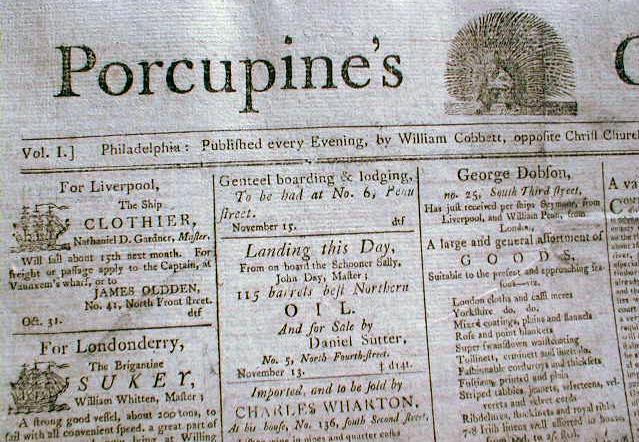 Porcupine's
Vol. I.] Philadelphia: Published every Evening, by William Cobbett, opposite Christ Church
For Liverpool,
The Ship
CLOTHIER,
Nathaniel D. Gardner, Master,
Will sail about 15th next month. For
freight or passage apply to the Captain, at
Vanuxem's wharf, or to
JAMES OLDDEN,
No. 41, North Front street.
Oct. 31. dtf
For Londonderry,
The Brigantine
SUKEY,
William Whitten, Master;
A strong good vessel, about 200 tons, to
sail with all convenient speed. a great part of
Genteel boarding & lodging,
To be had at No. 6, Penn
street.
November 15. dtf
Landing this Day,
From on board the Schooner Sally,
John Day, Master;
115 barrels best Northern
OIL.
And for Sale by
Daniel Sutter,
No. 5, North Fourth-street.
November 13. ‡ d14t.
Imported, and to be sold by
CHARLES WHARTON,
At his house, No. 136, south Second street,
George Dobson,
no. 25, South Third street,
Has just received per ships Seymour, from
Liverpool, and William Penn, from
London,
A large and general assortment of
GOODS,
Suitable to the present and approaching sea-
sons—viz.
London cloths and cassimeres
Yorkshire do. do.
Mixed coatings, plains and flannels
Rose and point blankets
Super swansdown waistcoating
Fashionable corduroys and thicksets
Fustians, printed and
verets and velvet cords
7-8 Irish linens well assorted in boxes
A va